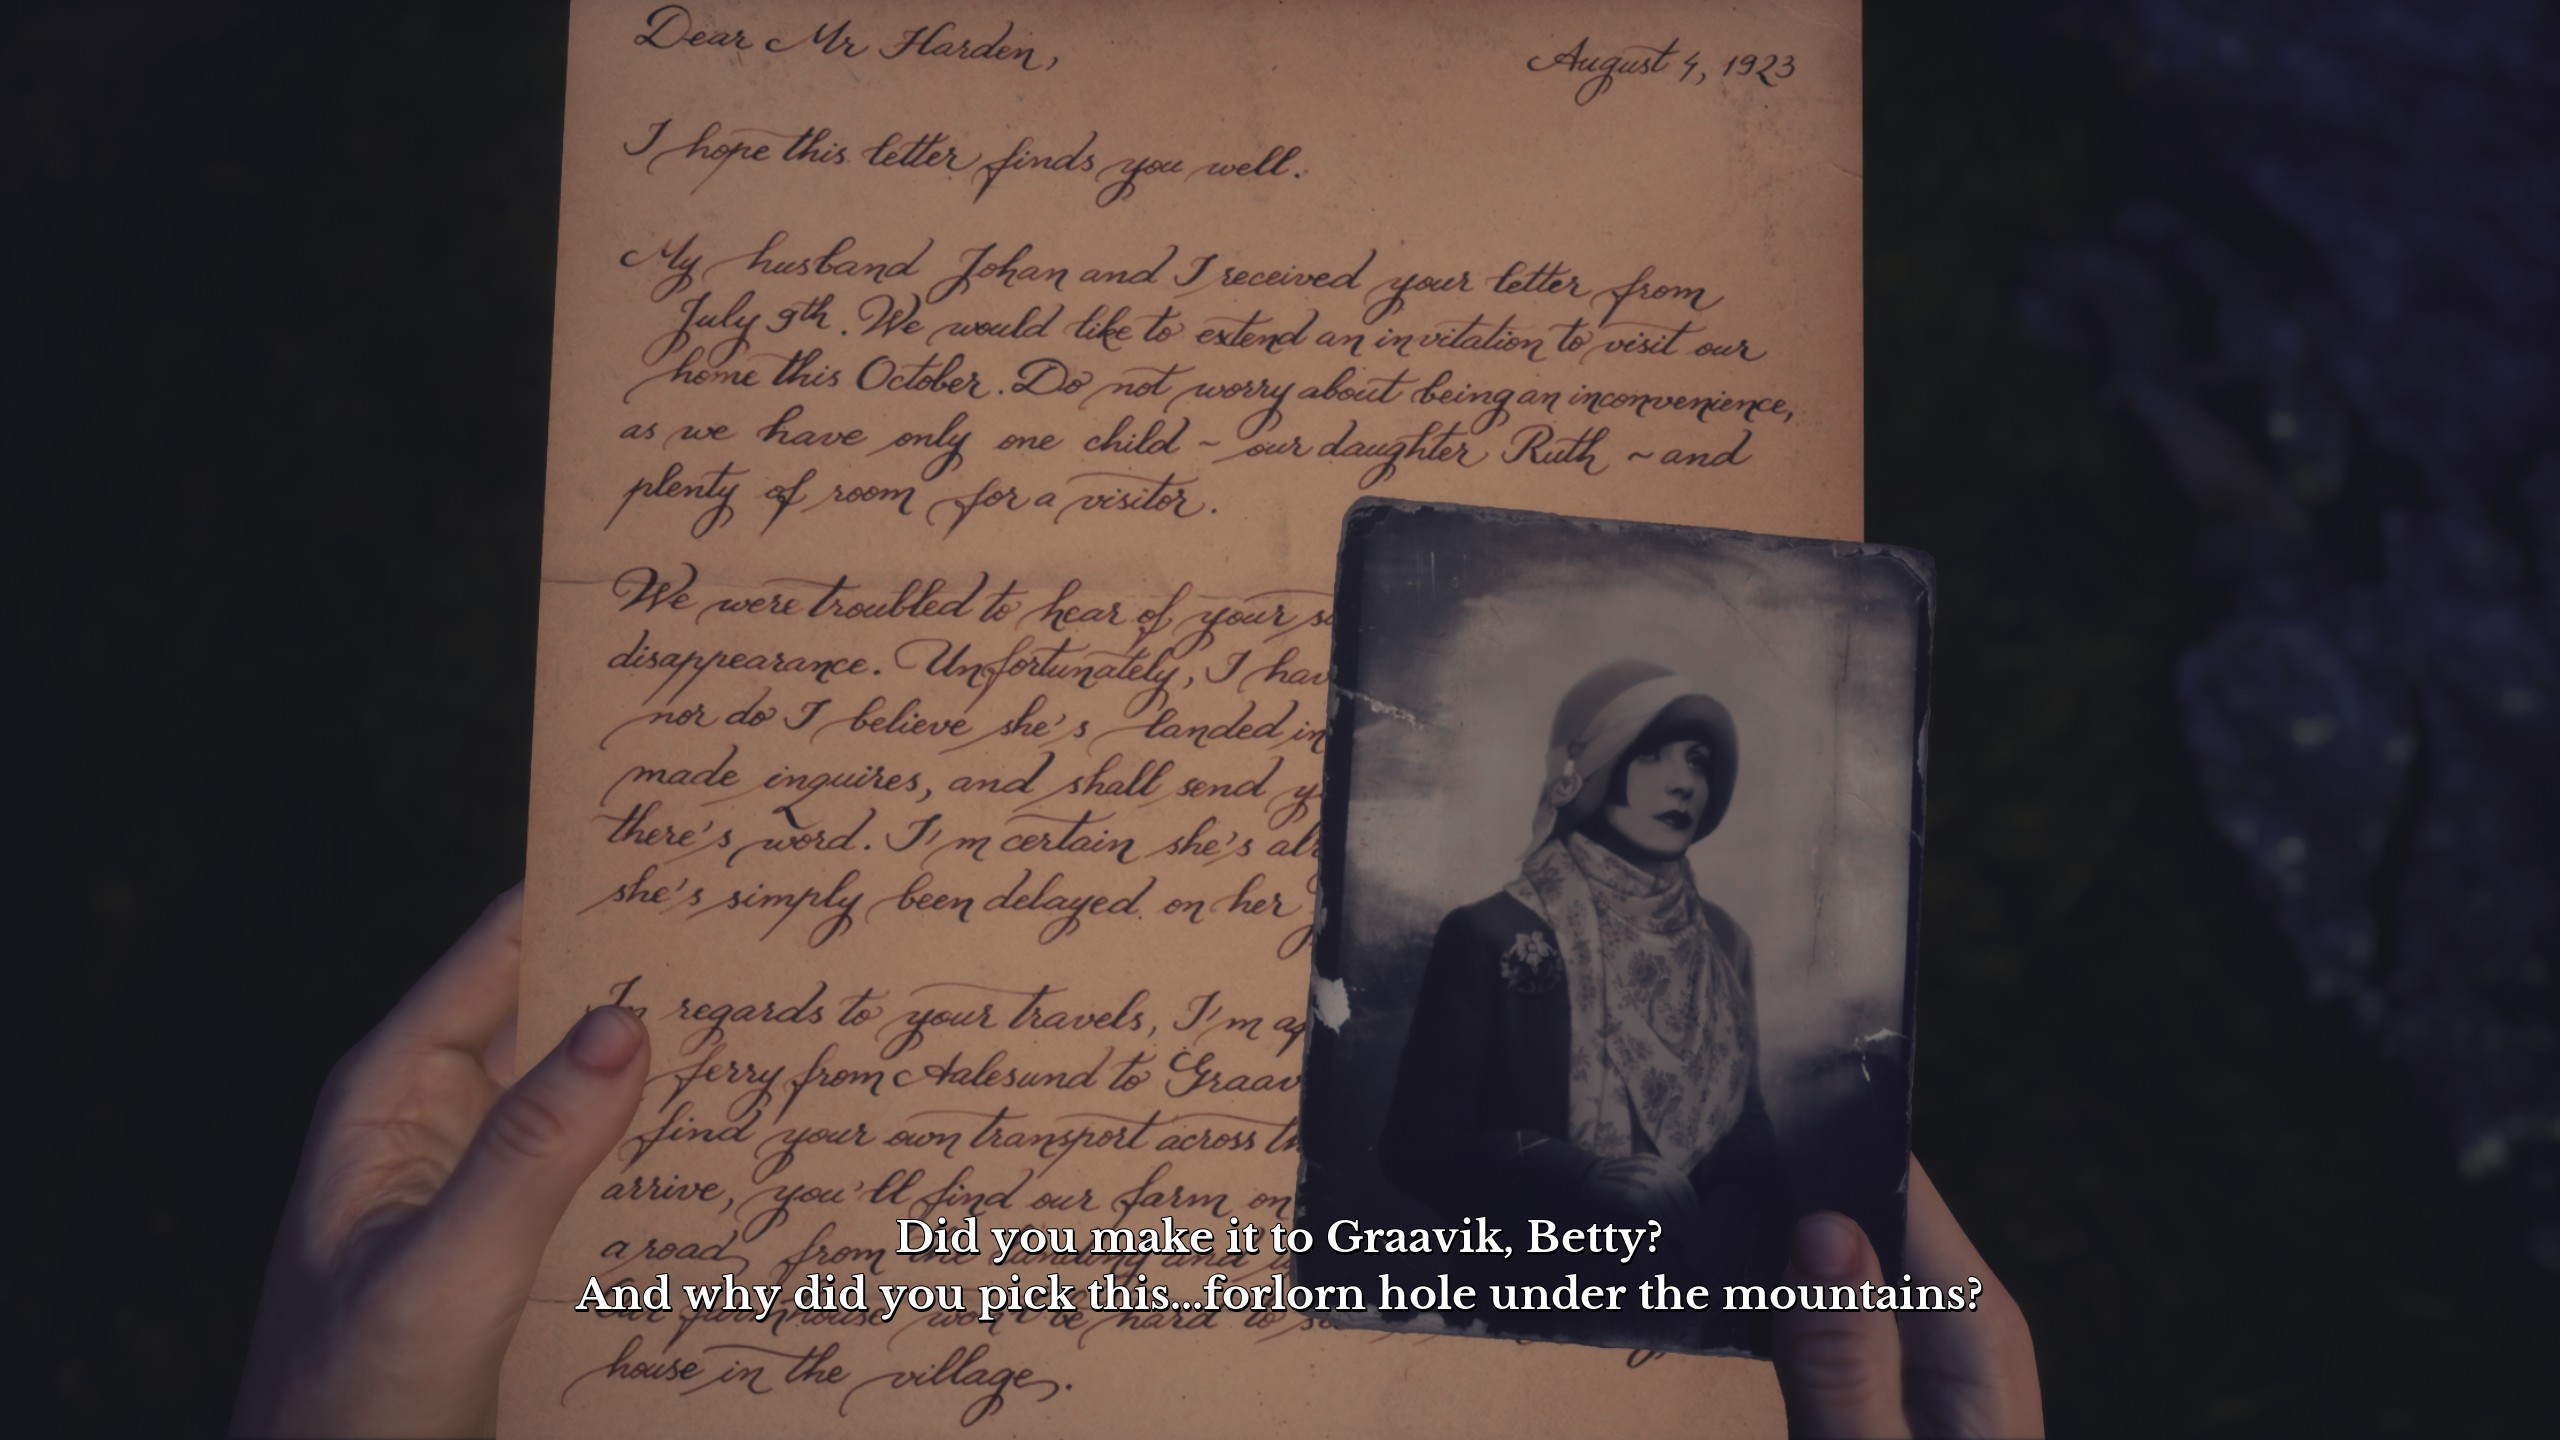 Dear Mr Harden,
August 4, 1923
I hope this letter finds you well.
My husband Johan and I received your letter from
July 9th. We would like to extend an invitation to visit our
home this October. Do not worry about being an inconvenience,
as we have only one child ~ our daughter Ruth ~ and
plenty of room for a visitor.
We were troubled to hear of your
disappearance. Unfortunately, I
nor do I believe she's landed in
made inquires, and shall send
there's word. I'm certain she's
she's simply been delayed on her
In regards to your travels, I'm
ferry from Aalesund to
find your own transport across
arrive, you'll find our farm on
a road from the landing and
Our farmhouse won't be hard to
house in the village.
Did you make it to Graavik, Betty?
And why did you pick this...forlorn hole under the mountains?